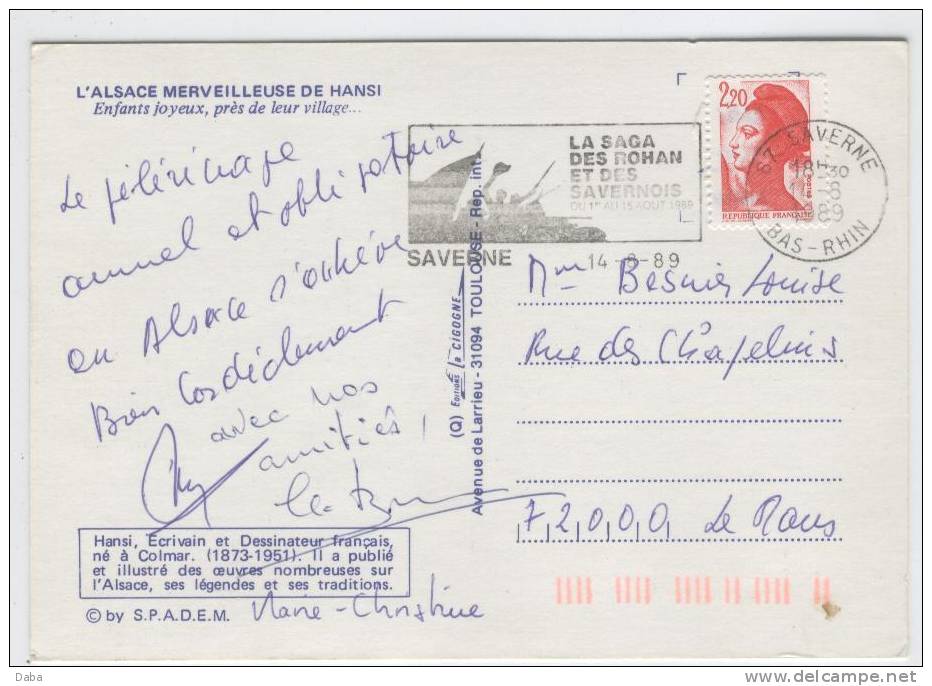 L'ALSACE MERVEILLEUSE DE HANSI
Enfants joyeux, près de leur village...
Le pélérinage
annuel et obligatoire
en Alsace s'achève
Bien Cordialement
avec nos
amitiés !
Marie-Christine
Hansi, Ecrivain et Dessinateur français,
né à Colmar. (1873-1951). Il a publié
et illustré des œuvres nombreuses sur
l'Alsace, ses légendes et ses traditions.
© by S.P.A.D.E.M.
(Q) EDITIONS la CIGOGNE
Avenue de Larrieu - 31094 TOULOUSE - Rep. int.
LA SAGA
DES ROHAN
ET DES
SAVERNOIS
DU 1er AU 15 AOUT 1989
SAVERNE 14-8-89
2,20
POSTES
REPUBLIQUE FRANÇAISE
67 SAVERNE
18H30
1989
BAS-RHIN
Mme Besnier Louise
Rue des Chapelins
72000 Le Mans
Daba
www.delcampe.net